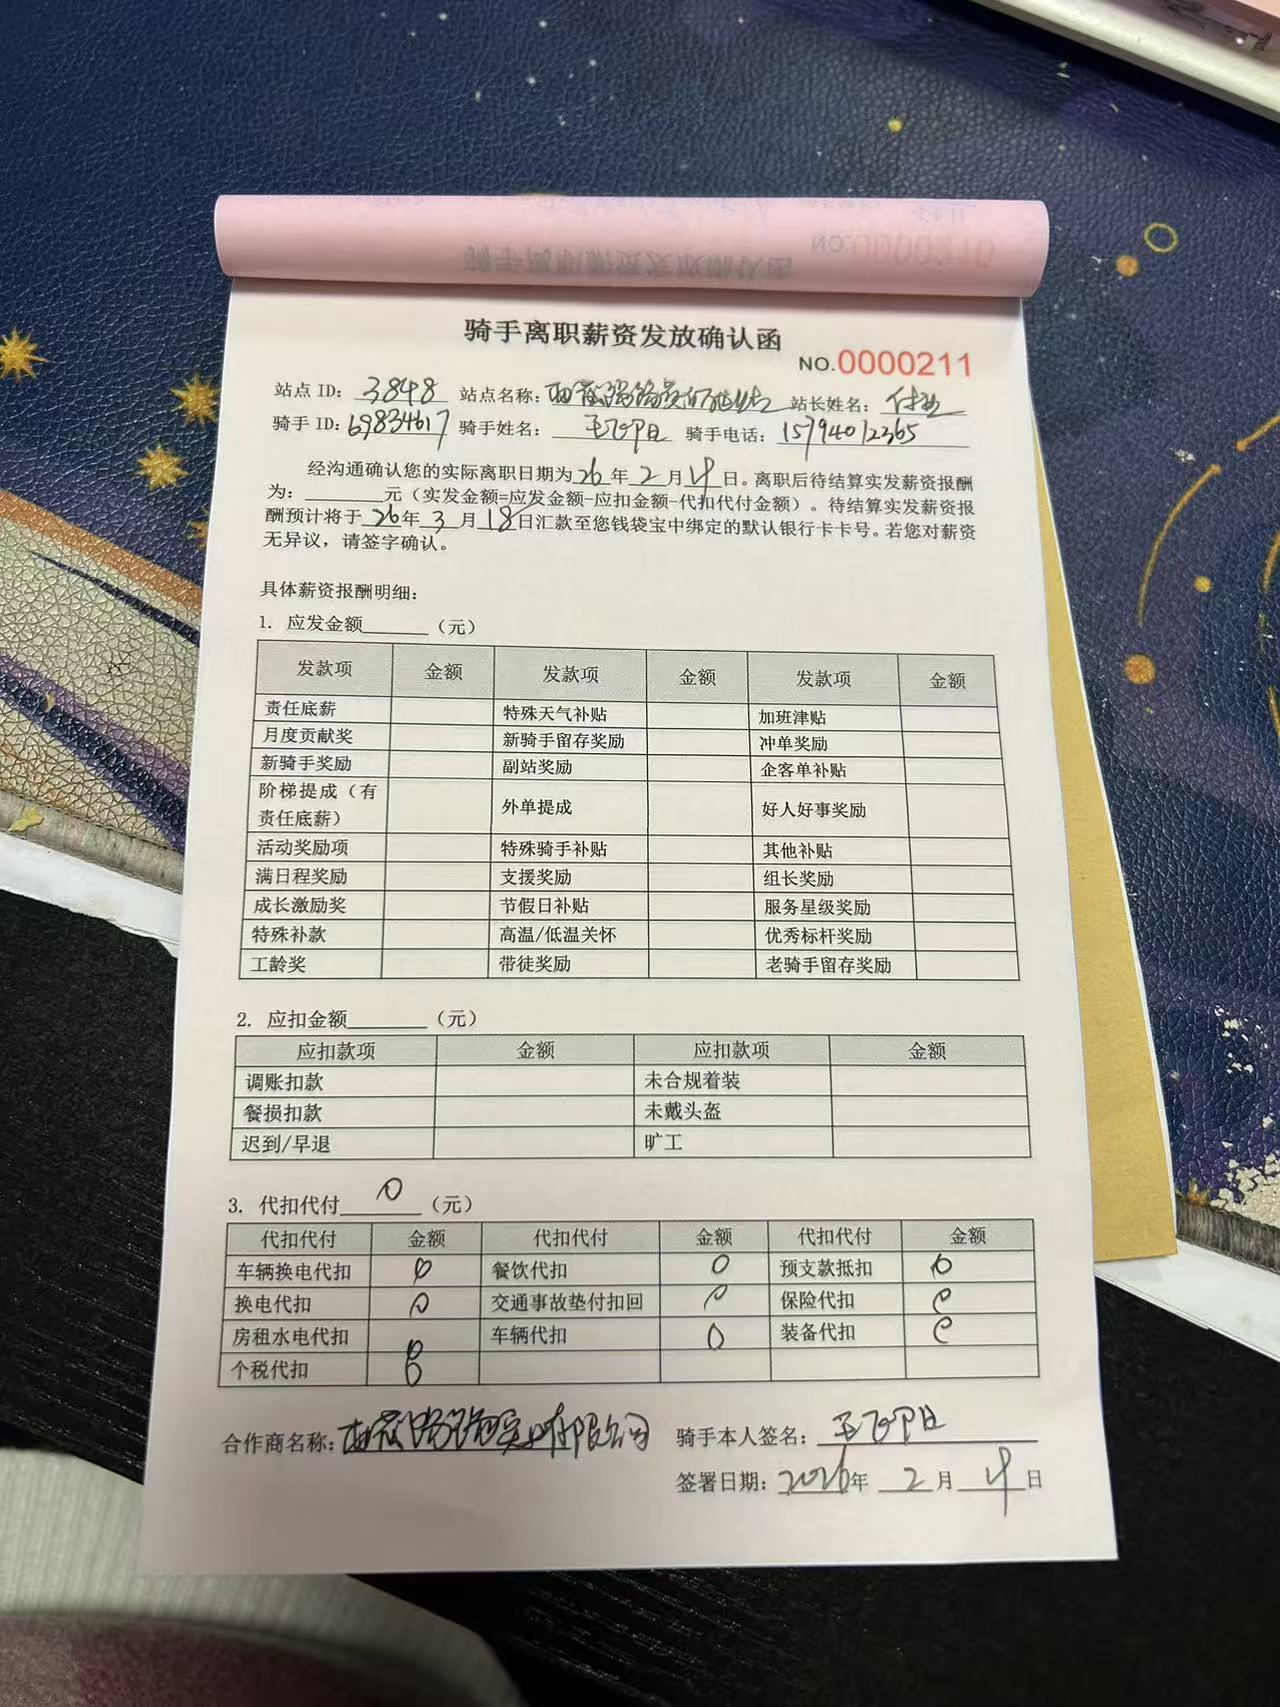 NO.0000210
骑手离职薪资发放确认函
骑手离职薪资发放确认函
NO.0000211
站点 ID: 3848 站点名称: 站长姓名:
骑手 ID: 69834617 骑手姓名: 骑手电话: 15794012365
经沟通确认您的实际离职日期为26年2月4日。离职后待结算实发薪资报酬
为:______元（实发金额=应发金额-应扣金额-代扣代付金额）。待结算实发薪资报
酬预计将于26年3月18日汇款至您钱袋宝中绑定的默认银行卡卡号。若您对薪资
无异议，请签字确认。
具体薪资报酬明细:
1. 应发金额______（元）
发款项 金额 发款项 金额 发款项 金额
责任底薪 特殊天气补贴 加班津贴
月度贡献奖 新骑手留存奖励 冲单奖励
新骑手奖励 副站奖励 企客单补贴
阶梯提成（有
责任底薪） 外单提成 好人好事奖励
活动奖励项 特殊骑手补贴 其他补贴
满日程奖励 支援奖励 组长奖励
成长激励奖 节假日补贴 服务星级奖励
特殊补款 高温/低温关怀 优秀标杆奖励
工龄奖 带徒奖励 老骑手留存奖励
2. 应扣金额______（元）
应扣款项 金额 应扣款项 金额
调账扣款 未合规着装
餐损扣款 未戴头盔
迟到/早退 旷工
3. 代扣代付 0 （元）
代扣代付 金额 代扣代付 金额 代扣代付 金额
车辆换电代扣 0 餐饮代扣 0 预支款抵扣 0
换电代扣 0 交通事故垫付扣回 0 保险代扣 0
房租水电代扣 0 车辆代扣 0 装备代扣 0
个税代扣 0
合作商名称: 有限公司 骑手本人签名:
签署日期: 2026年 2月 4日